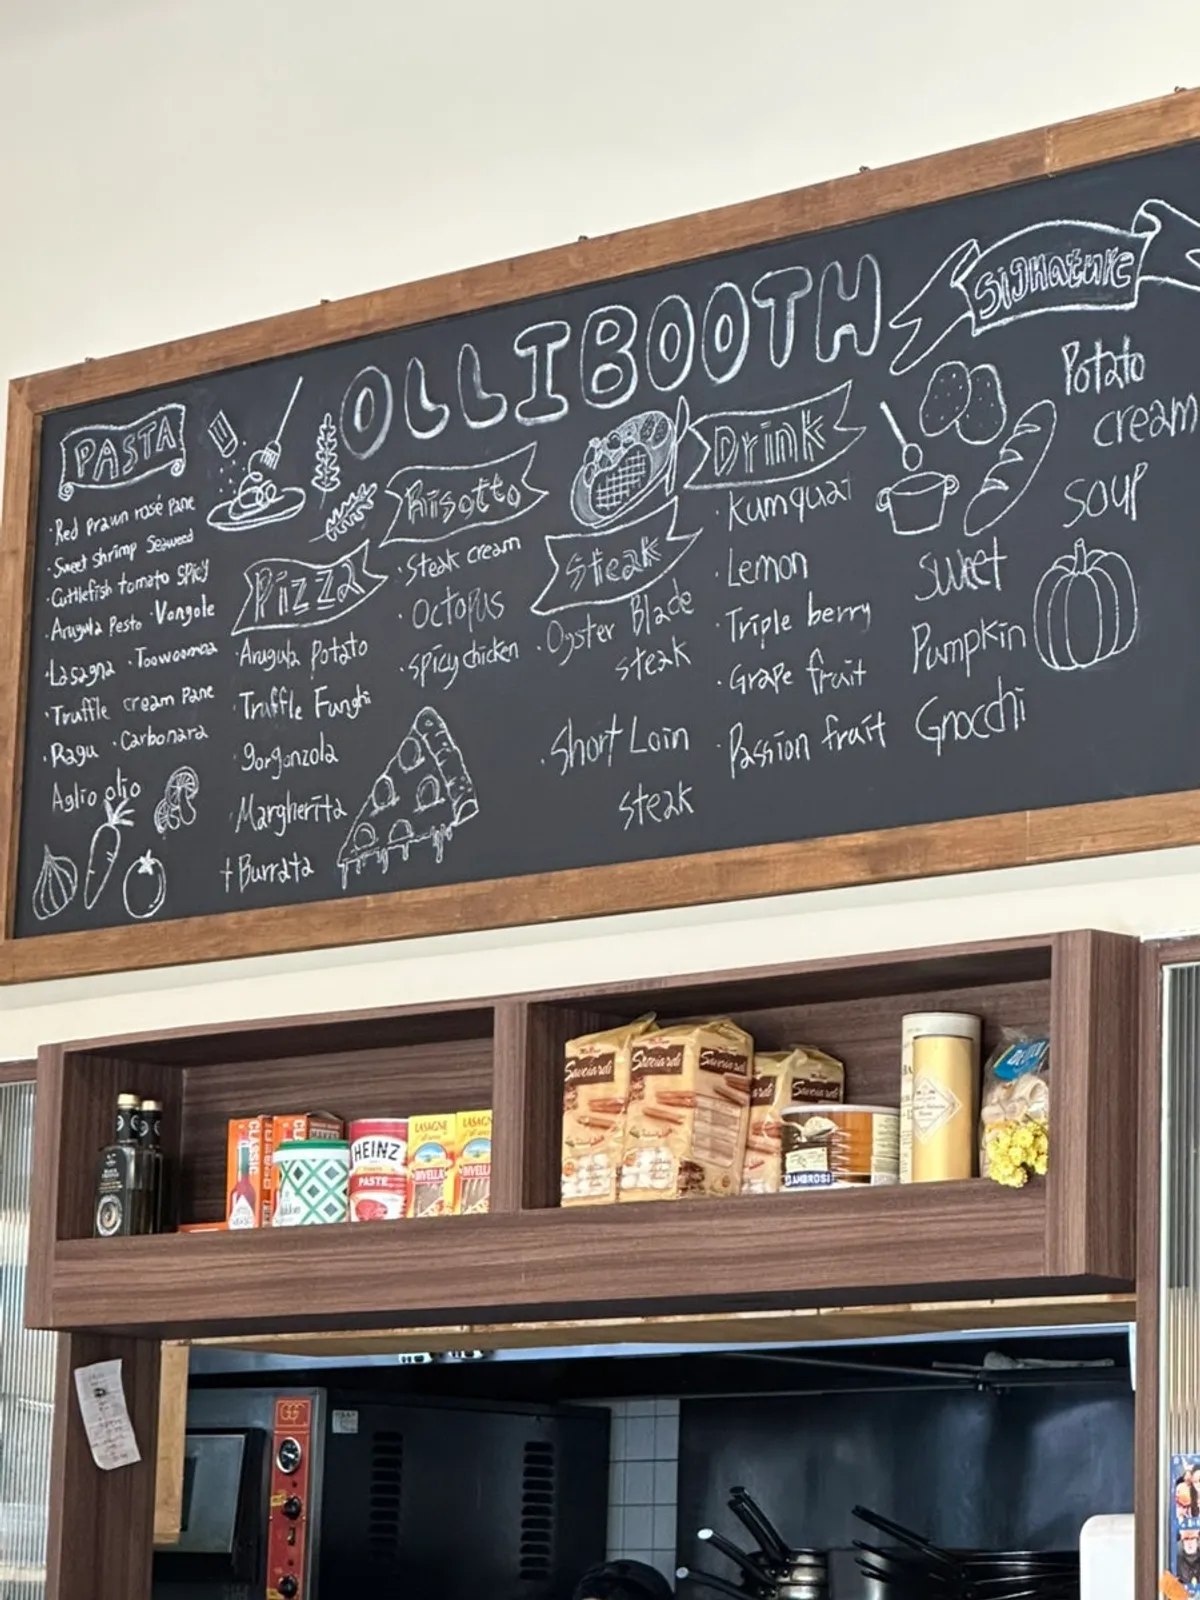 OLLIBOOTH
PASTA
· Red prawn rosé Pane
· Sweet shrimp Seaweed
· Cuttlefish tomato spicy
· Arugula Pesto · Vongole
· Lasagna · Toowoomba
· Truffle cream Pane
· Ragu · Carbonara
Aglio olio
Pizza
· Arugula Potato
· Truffle Funghi
· gorgonzola
· Margherita
+ Burrata
Risotto
· Steak cream
· Octopus
· spicy chicken
Steak
· Oyster Blade
steak
· Short Loin
steak
Drink
· Kumquat
· Lemon
· Triple berry
· Grape fruit
· Passion fruit
Signature
Potato
cream
soup
Sweet
Pumpkin
Gnocchi
CLASSIC
HEINZ
PASTE
LASAGNE
DIVELLA
LASAGNE
DIVELLA
Savoiardi
Savoiardi
Savoiardi
Savoiardi
AMBROSI